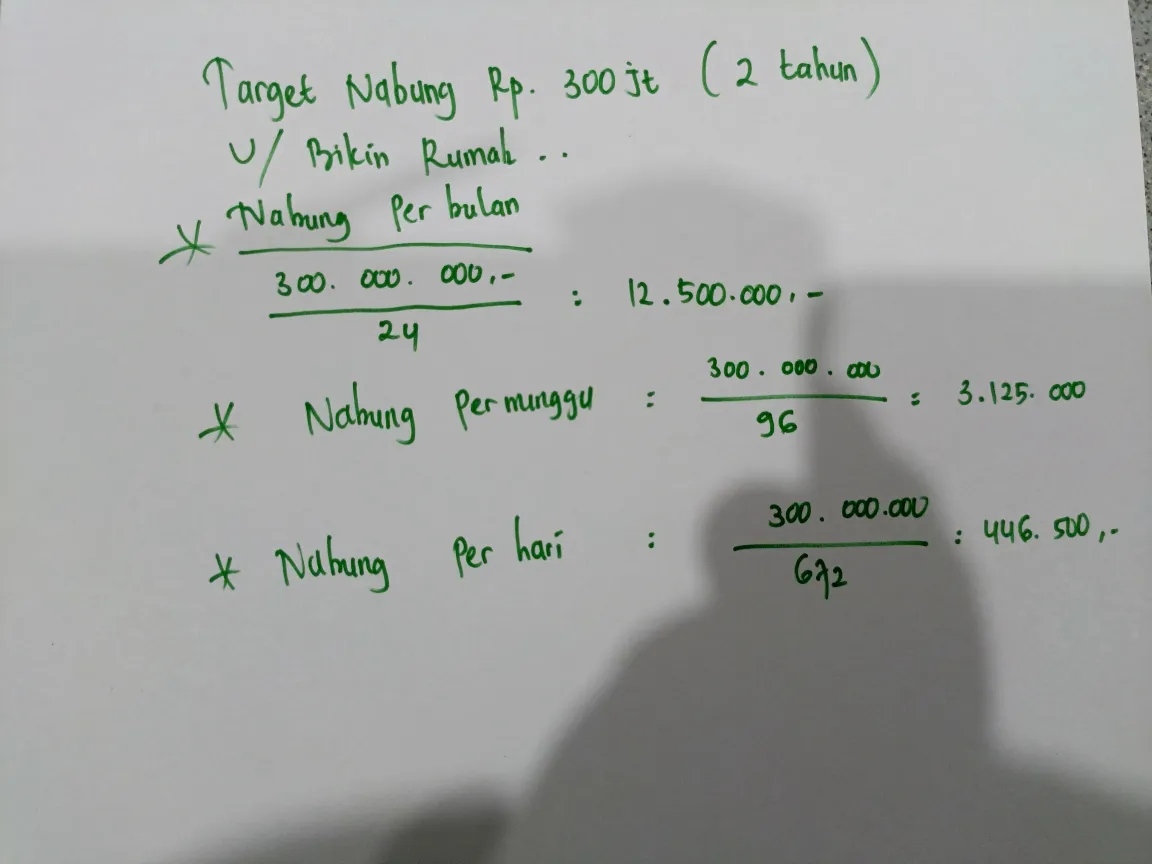 Target Nabung Rp. 300 jt ( 2 tahun )
U/ Bikin Rumah ..
* Nabung Per bulan
300. 000. 000,- : 12.500.000,-
24
* Nabung Permunggu : 300. 000. 000 = 3.125. 000
96
* Nabung Per hari : 300. 000.000 : 446. 500,-
672